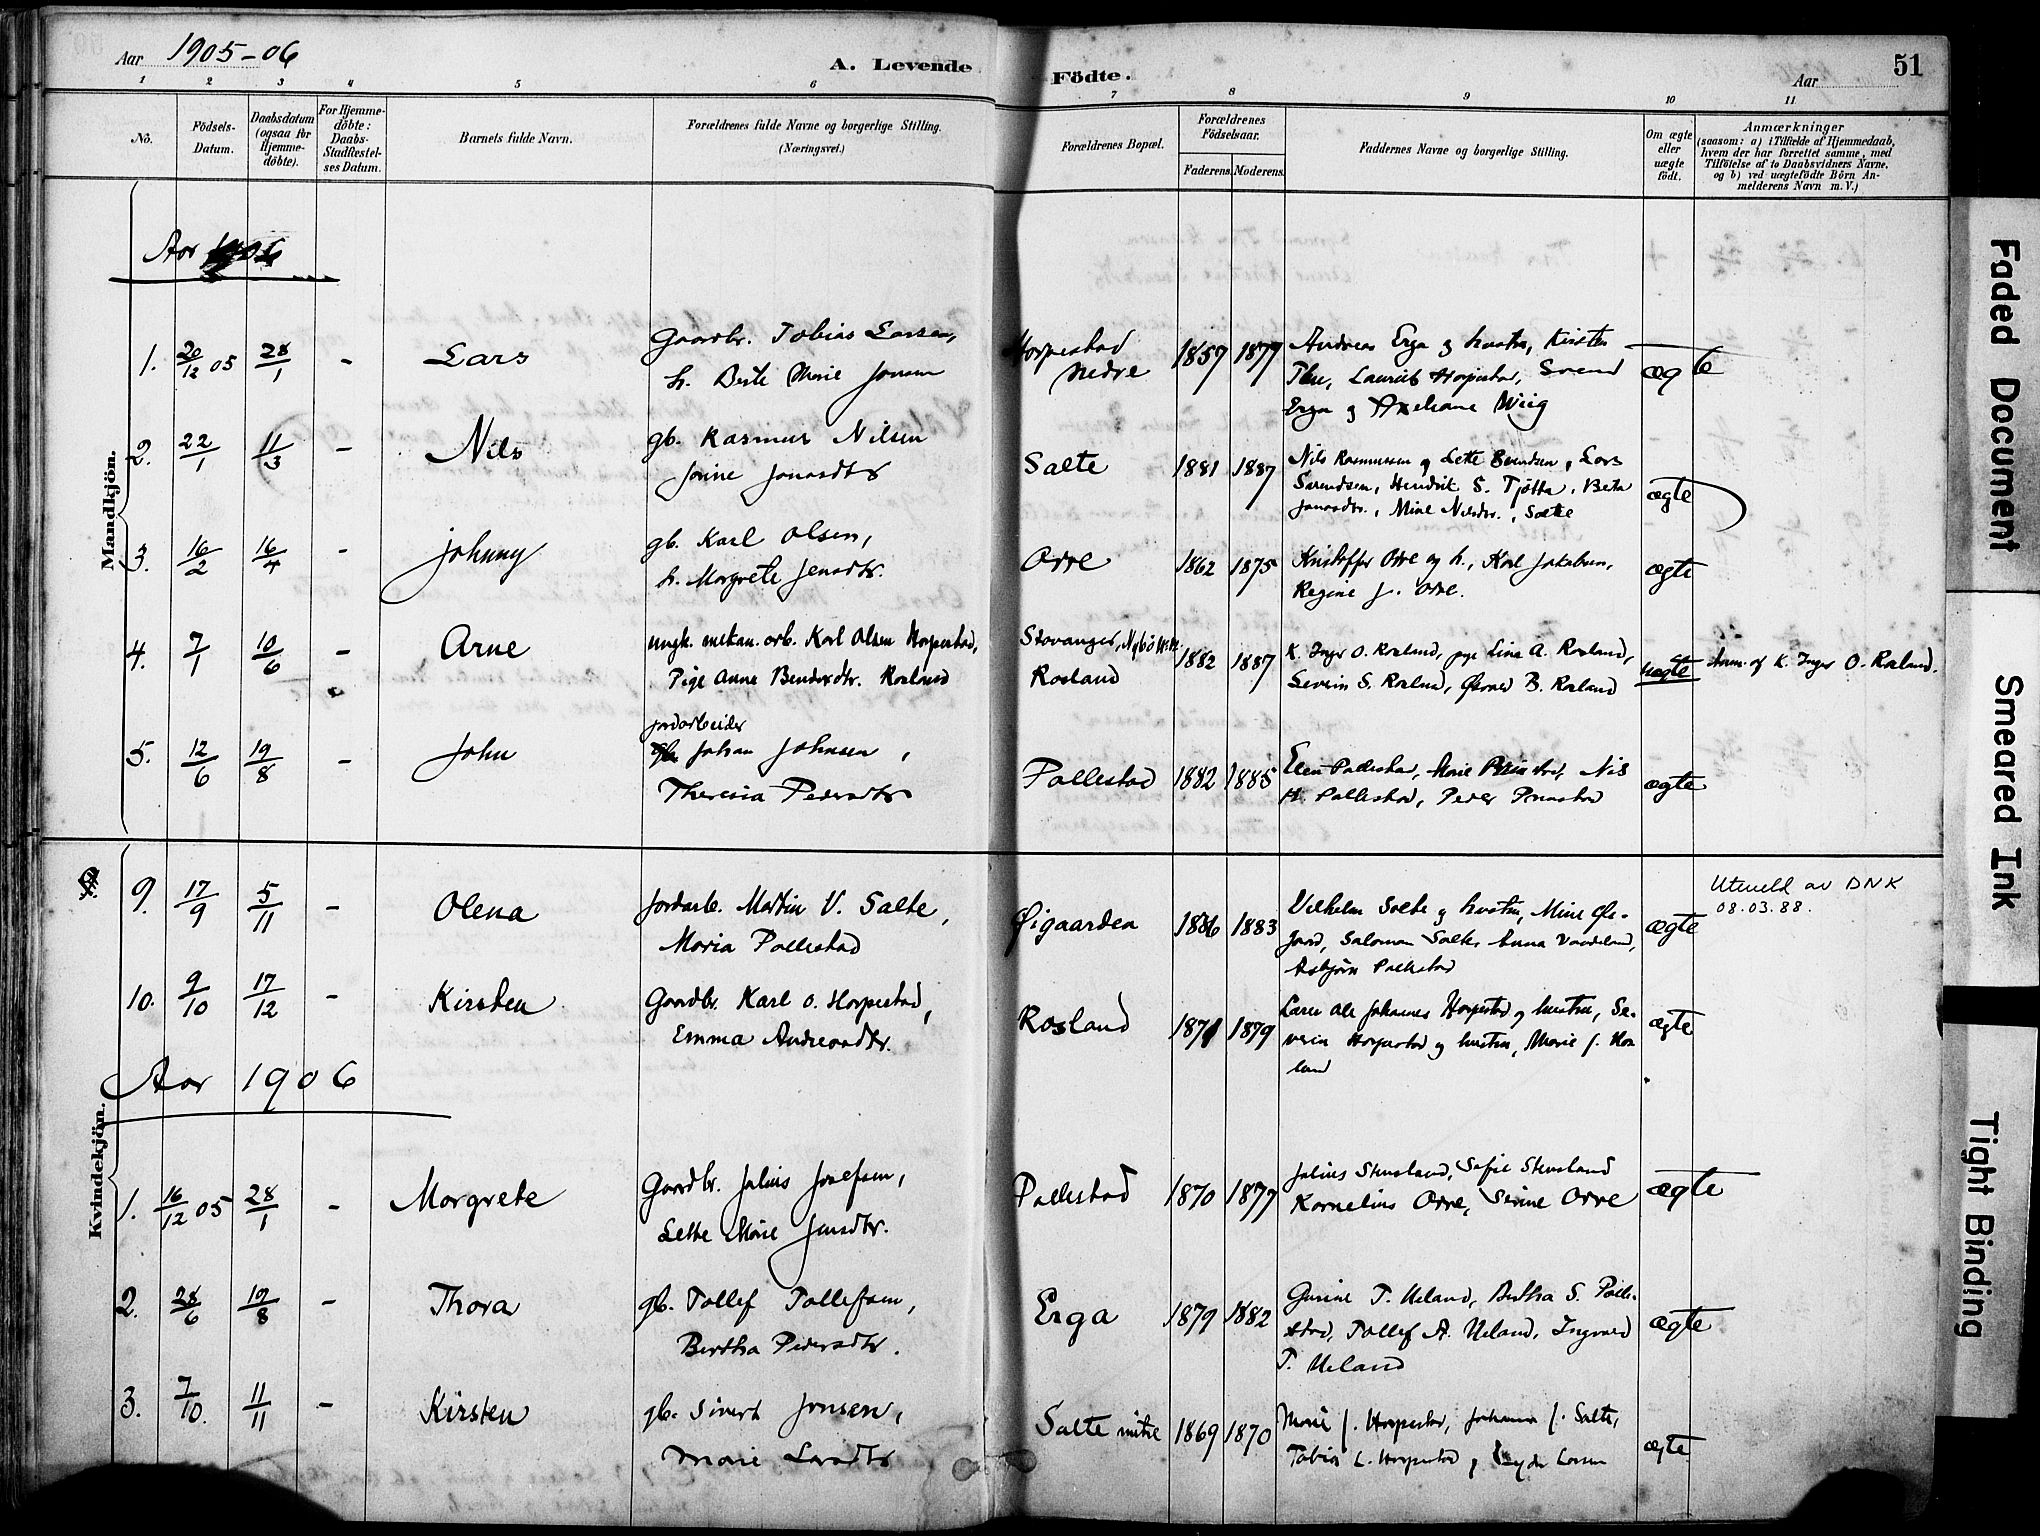 Aar 1905-06
A. Levende Födte.
Aar
51
1 2 3 4 5 6 7 8 9 10 11
No.
Födsels-
Datum.
Daabsdatum
(ogsaa for
Hjemme-
döbte).
For Hjemme-
döbte:
Daabs-
Stadfæstel-
ses Datum.
Barnets fulde Navn.
Forældrenes fulde Navne og borgerlige Stilling.
(Næringsvei.)
Forældrenes Bopæl.
Forældrenes
Födselsaar.
Faderens.
Moderens.
Faddernes Navne og borgerlige Stilling.
Om ægte
eller
uægte
födt.
Anmærkninger
(saasom: a) i Tilfælde af Hjemmedaab,
hvem der har forrettet samme, med
Tilföielse af to Daabsvidners Navne,
og b) ved uægtefödte Börn An-
melderens Navn m. V.)
Mandkjön.
Aar 1906
1. 20/12 05 28/1 - Lars
Gaardbr. Tobias Larsen,
h. Berte Marie Jonsen
Horpestad
nedre
1857 1877
Andreas Erga og hustru, Kirsten
Laurits Horpestad, Svend
Erga og Axeliane Wiig
ægte
2. 22/1 11/3 - Nils
gb. Rasmus Nilsen
Jorine Jonasdtr
Salte 1881 1887
Nils Rasmussen og Lette Svendsen, Lars
Sørendsen, Hendrik S. Tjötta, Berta
Jonasdtr., Mine Nilsdtr., Salte
ægte
3. 16/2 16/4 - Johnny
gb. Karl Olsen,
h. Margrete Jensdtr.
Orre 1862 1875
Kristoffer Orre og h., Karl Jakobsen,
Regine J. Orre.
ægte
4. 7/1 10/6 - Arne
ungk. mekan. arb. Karl Olsen Horpestad,
Pige Anna Bendixdtr. Rosland
Stavanger,
Rosland
1882 1887
K. Inger O. Rosland, pige Lina A. Rosland,
Severin S. Rosland, B. Rosland
uægte
Anm. af K. Inger O. Rosland.
5. 12/6 19/8 - John
jordarbeider
gb. Johan Johnsen,
Theresia Pedersdtr
Pollestad 1882 1885
Elen Pollestad, Marie Nils
H. Pollestad, Peder
ægte
Kvindekjön.
9. 17/9 5/11 - Olena
Jordarb. Martin V. Salte,
Maria Pollestad
Øigaarden 1886 1883
Vilhelm Salte og hustru, Mine Øi-
gaard, Salomon Salte, Anna Vaadeland,
Asbjörn Pollestad
ægte
Utmeld av DNK
08.03.88.
10. 9/10 17/12 - Kirsten
Gaardbr. Karl O. Horpestad,
Emma Andreasdtr.
Rosland 1871 1879
Lærer Ole Johannes Horpestad og hustru, Se-
verin Horpestad og hustru, Marie J. Ros
land
ægte
Aar 1906
1. 16/12 05 28/1 - Margrete
Gaardbr. Julius Josefsen,
Lette Marie Jensdtr.
Pollestad 1870 1877
Julius Stensland, Sofie Stensland
Kornelius Orre, Serine Orre
ægte
2. 28/6 19/8 - Thora
gb. Tollef Tollefsen,
Bertha Pedersdtr.
Erga 1879 1882
Gurine T. Ueland, Bertha S. Polle-
stad, Tollef A. Ueland, Ingvald
T. Ueland
ægte
3. 7/10. 11/11 - Kirsten
gb. Sivert Jonsen,
Marie Larsdtr
Salte mitre 1869 1870
Marie J. Horpestad, Johanna J. Salte,
Tobias L. Horpestad, Larsen
ægte
Faded Document
Smeared Ink
Tight Binding